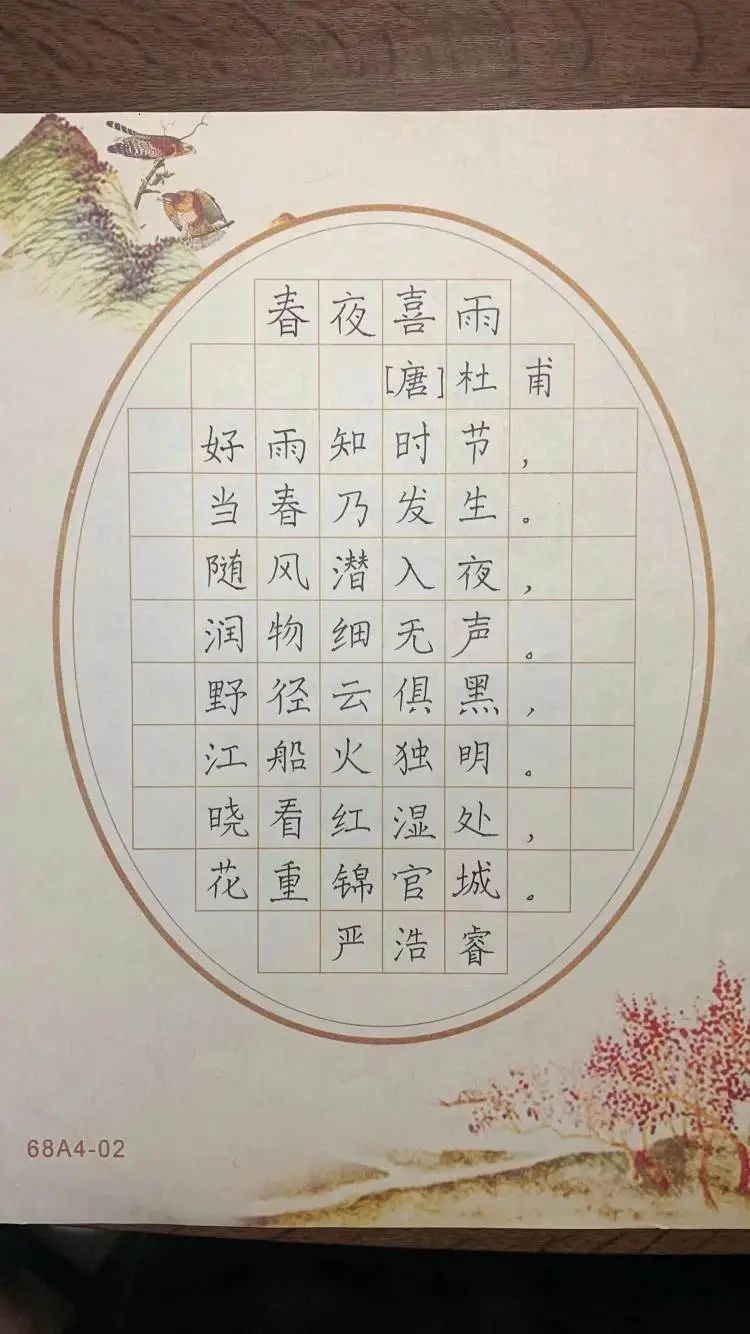 春夜喜雨
[唐]杜甫
好雨知时节，
当春乃发生。
随风潜入夜，
润物细无声。
野径云俱黑，
江船火独明。
晓看红湿处，
花重锦官城。
严浩睿
68A4-02